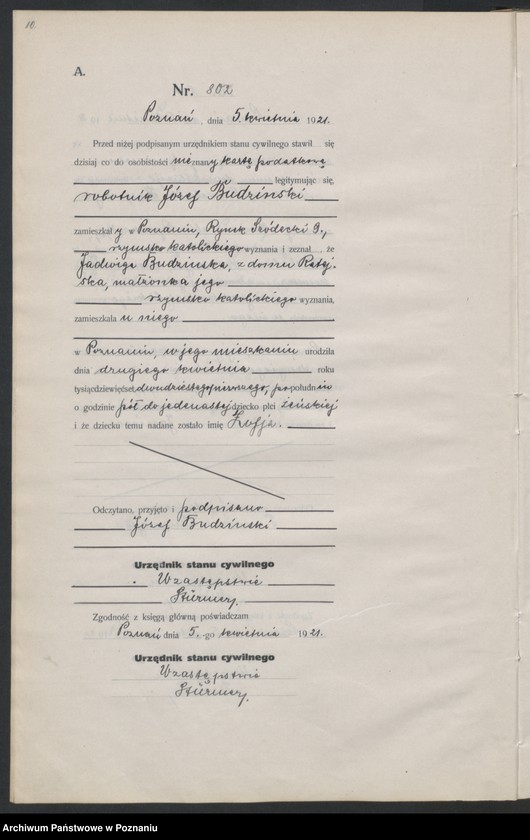 10.
A.
Nr. 802
Poznań, dnia 5. kwietnia 1921.
Przed niżej podpisanym urzędnikiem stanu cywilnego stawił się
dzisiaj co do osobistości nieznany kartą podatkową
legitymując się,
robotnik Józef Budziński
zamieszkały w Poznaniu, Rynek Śródecki 9.,
rzymsko katolickiego wyznania i zeznał, że
Jadwiga Budzinska, z domu Rataj-
ska, małżonka jego
rzymsko katolickiego wyznania,
zamieszkała u niego
w Poznaniu, w jego mieszkaniu urodziła
dnia drugiego kwietnia roku
tysiącdziewięćset dwudziestegopierwszego, popołudniu
o godzinie pół do jedenastej dziecko płci żeńskiej
i że dziecku temu nadane zostało imię Zofja.
Odczytano, przyjęto i podpisano
Józef Budzinski
Urzędnik stanu cywilnego
W zastępstwie
Zgodność z księgą główną poświadczam
Poznań dnia 5.-go kwietnia 1921.
Urzędnik stanu cywilnego
W zastępstwie
Archiwum Państwowe w Poznaniu